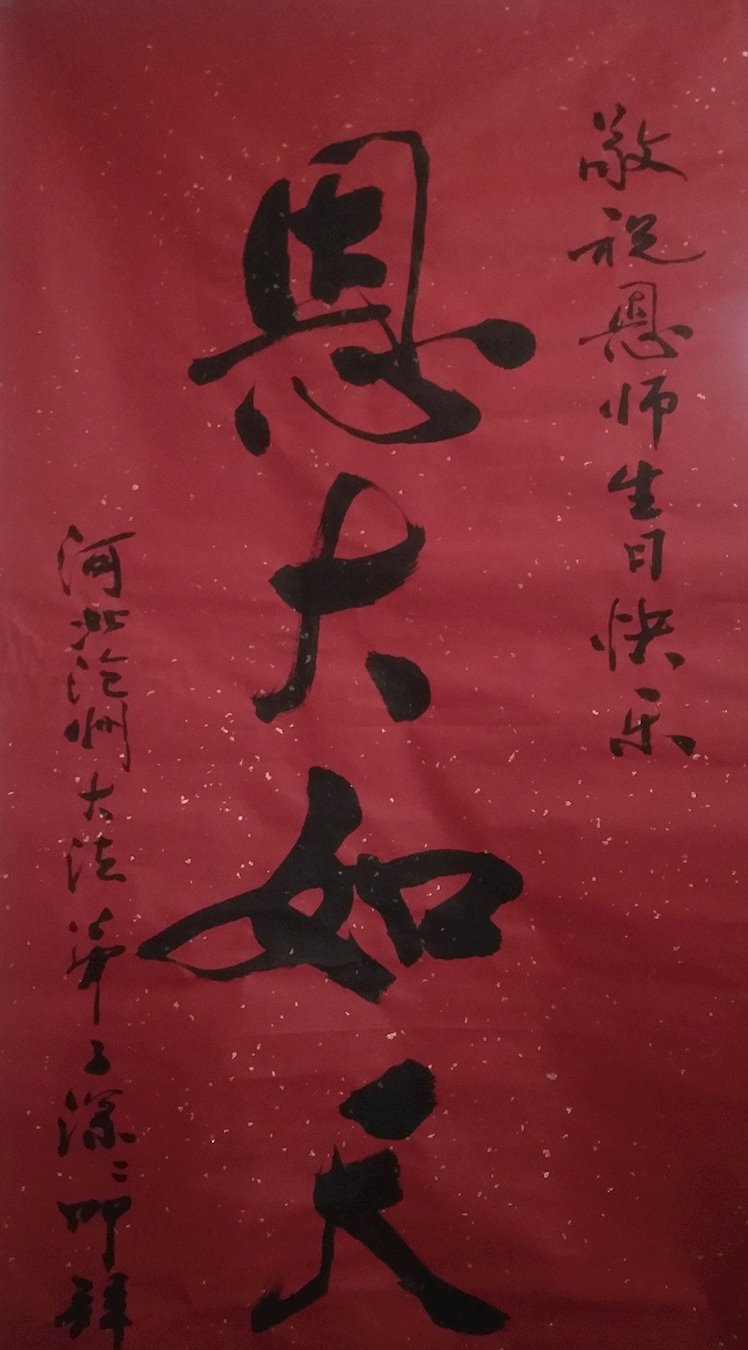 敬祝恩师生日快乐
恩大如天
河北沧州大法弟子深深叩拜